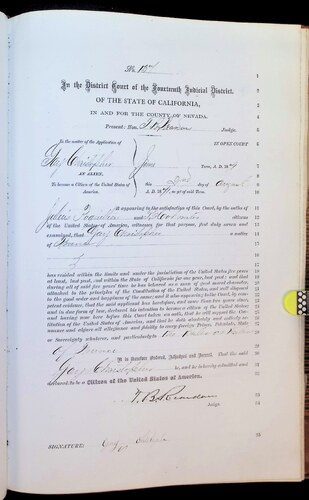 No. 137
In the District Court of the Fourteenth Judicial District,
OF THE STATE OF CALIFORNIA,
IN AND FOR THE COUNTY OF NEVADA.
Present: Hon. Judge.
In the matter of the Application of
IN OPEN COURT
Guy Christopher
June Term, A. D. 187
AN ALIEN,
To become a Citizen of the United States of America.
this day of August
A. D. 187, as yet of said Term.
It appearing to the satisfaction of this Court, by the oaths of
Julius and citizens
of the United States of America, witnesses for that purpose, first duly sworn and
examined, that Guy Christopher a native
of France
has resided within the limits and under the jurisdiction of the United States five years
at least, last past, and within the State of California for one year, last past; and that
during all of said five years' time he has behaved as a man of good moral character,
attached to the principles of the Constitution of the United States, and well disposed
to the good order and happiness of the same; and it also appearing to the Court, by com-
petent evidence, that the said applicant has heretofore, and more than two years since,
and in due form of law, declared his intention to become a citizen of the United States;
and having now here before this Court taken an oath, that he will support the Con-
stitution of the United States of America, and that he doth absolutely and entirely re-
nounce and abjure all allegiance and fidelity to every foreign Prince, Potentate, State
or Sovereignty whatever, and particularly to
of France
It is therefore Ordered, Adjudged and Decreed, That the said
Guy Christopher be, and he is hereby admitted and
declared to be a Citizen of the United States of America.
T. B. Reardan
Judge.
SIGNATURE: Guy